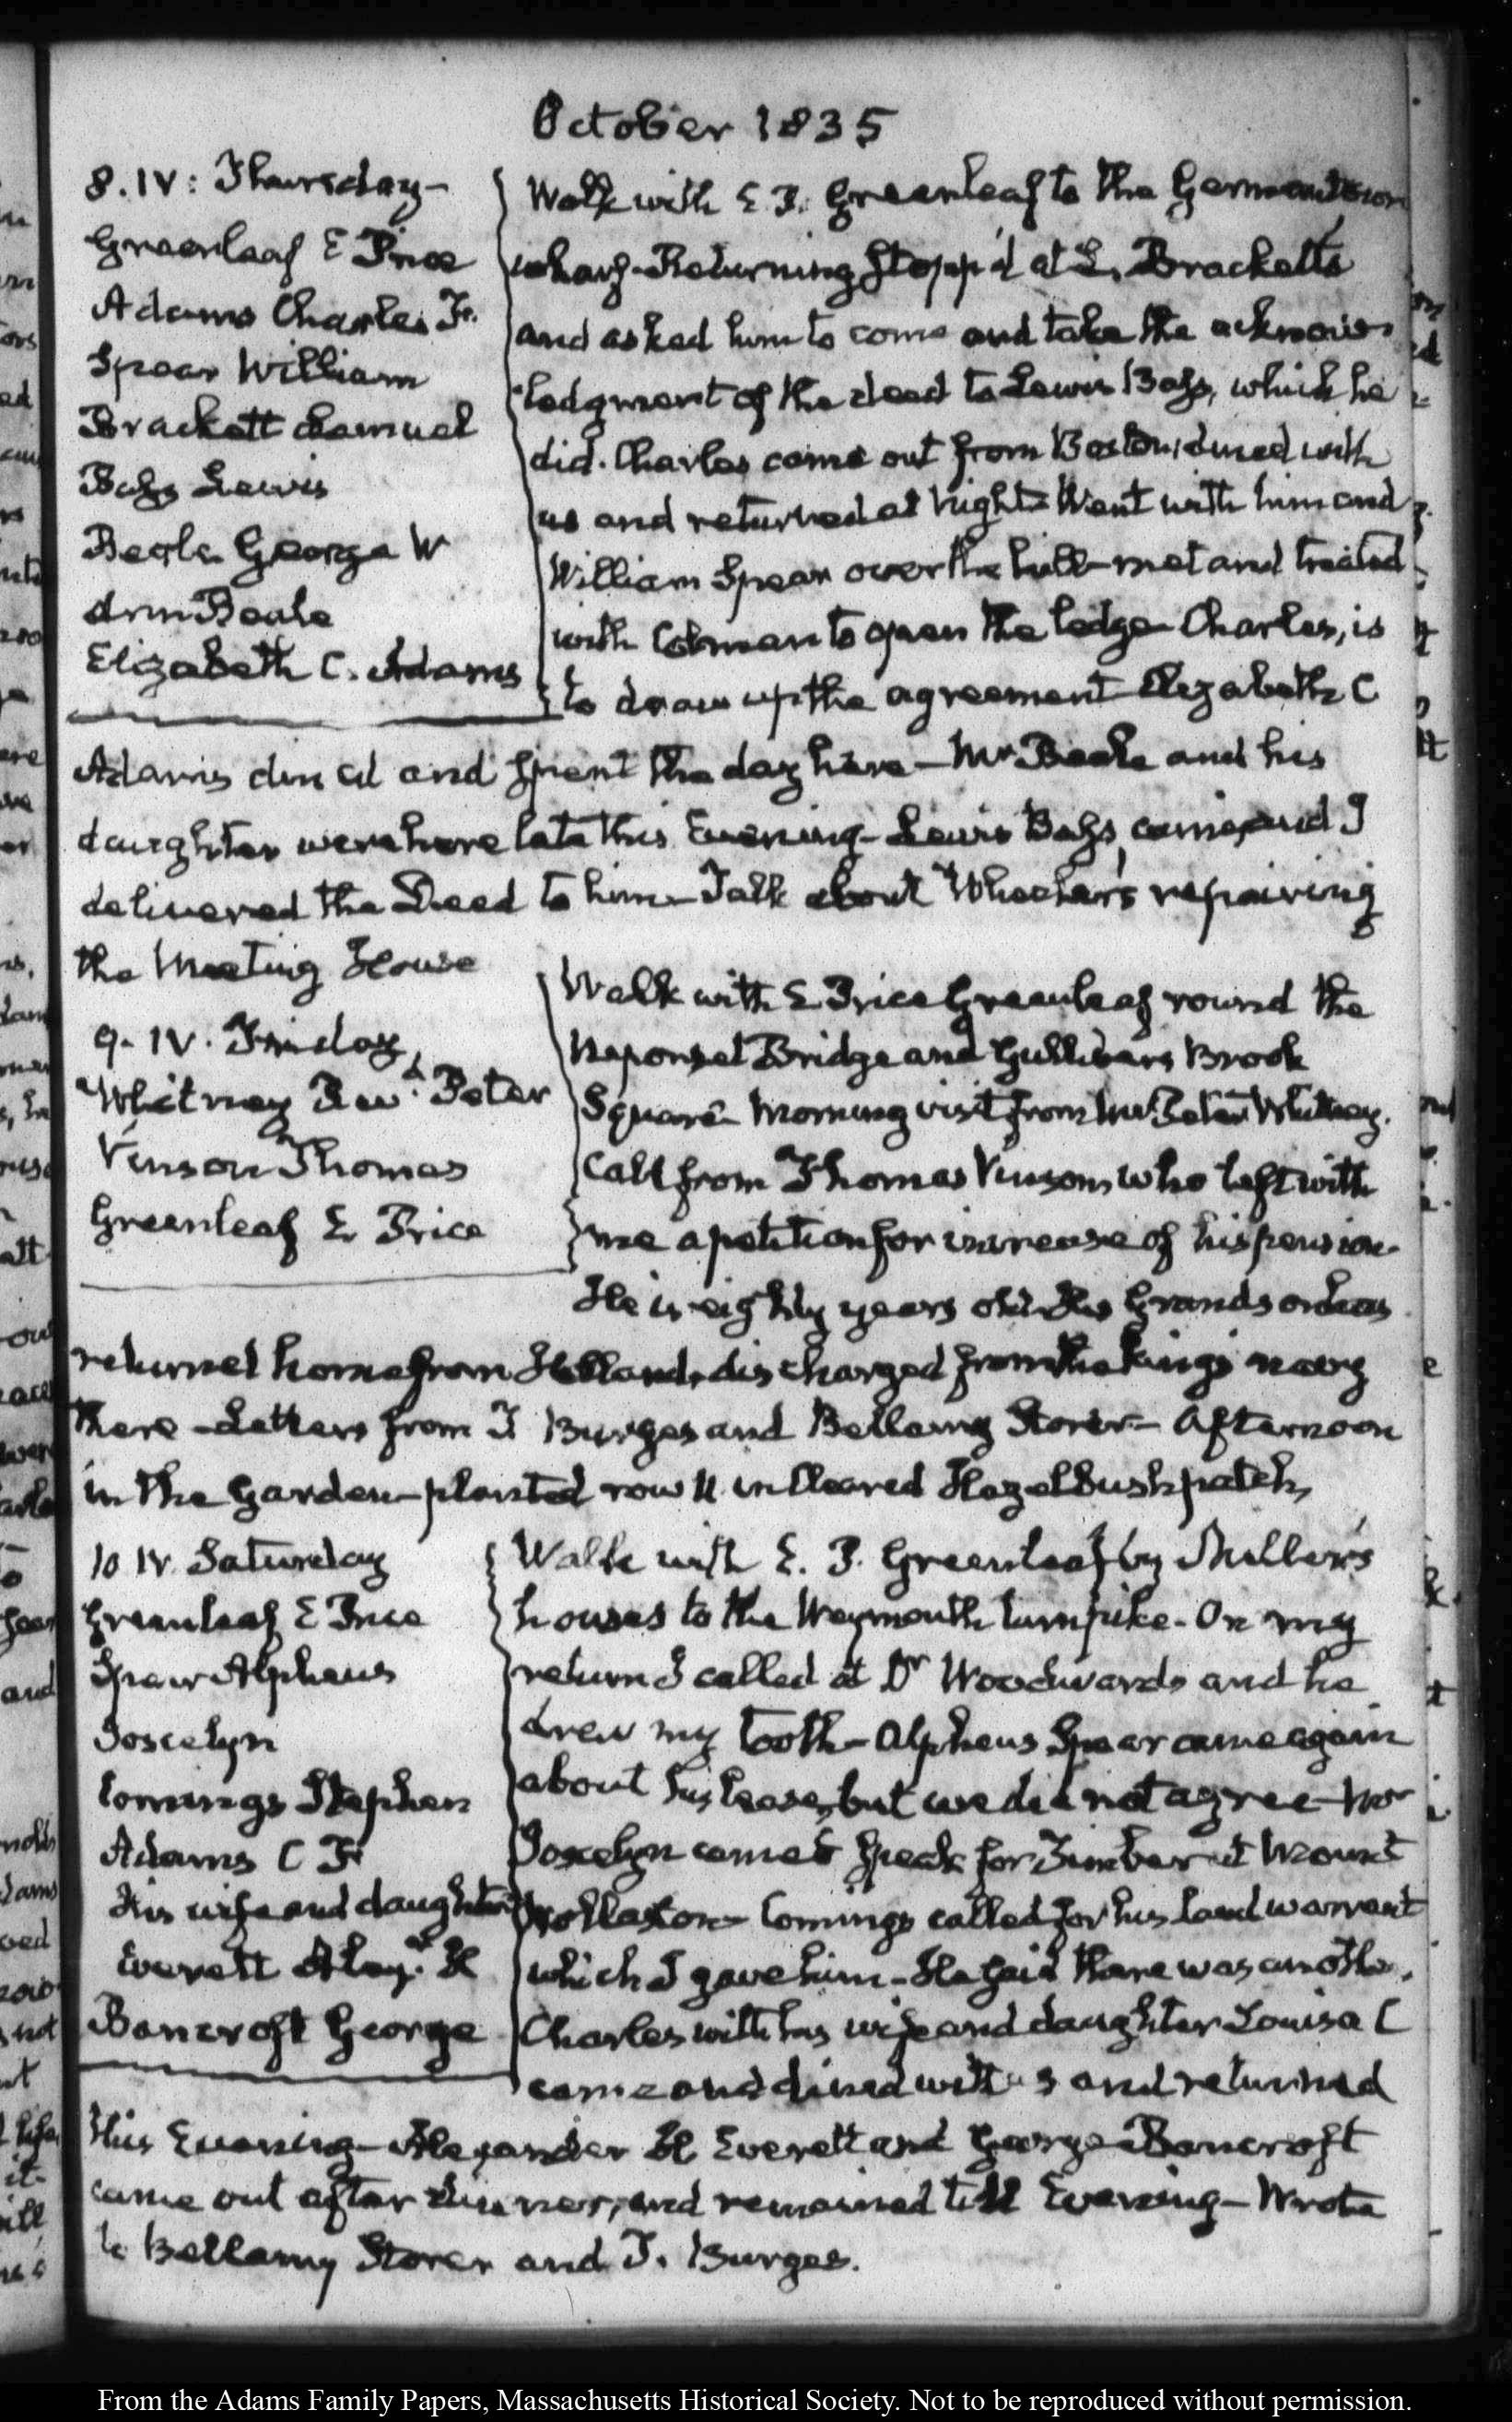 October 1835
8. IV: Thursday-
Greenleaf E Price
Adams Charles Fr.
Spear William
Brackett Samuel
Bass Lewis
Beale George W
Ann Beale
Elizabeth C. Adams
Walk with E. P. Greenleaf to the Germantown
wharf- Returning stopp'd at S. Brackett's
and asked him to come and take the acknow-
ledgment of the deed to Lewis Bass, which he
did. Charles came out from Boston, dined with
us and returned at night- Went with him and
William Spear over the hill- met and treated
with Colman to open the ledge- Charles, is
to draw up the agreement- Elizabeth C
Adams dined and spent the day here- Mr Beale and his
daughter were here late this Evening- Lewis Bass, came, and I
delivered the Deed to him- Talk about Wheeler's repairing
the Meeting House
9. IV. Friday,
Whitney Revd. Peter
Vinson Thomas
Greenleaf E. Price
Walk with E Price Greenleaf round the
Neponset Bridge and Gullivers Brook
Square- Morning visit from Mr Peter Whitney.
Call from Thomas Vinson, who left with
me a petition for increase of his pension-
He is eighty years old- His Grandson has
returned home from Holland, discharged from the kings navy
there- Letters from T Burges and Bellamy Storer- Afternoon
in the Garden- planted row 11. in cleared Hazelbush patch,
10 IV. Saturday
Greenleaf E Price
Spear Alpheus
Joscelyn
Comings Stephen
Adams C F.
His wife and daughter
Everett Alexr. H
Bancroft George
Walk with E. P. Greenleaf by Miller's
houses to the Weymouth turnpike- On my
return I called at Dr Woodwards and he
drew my tooth- Alpheus Spear came again
about his lease, but we did not agree- Mr
Joscelyn came to speak for Timber at Mount
Wollaston- Comings called for his land warrant
which I gave him- He said there was another.
Charles with his wife and daughter Louisa C
came and dined with us and returned
this Evening- Alexander H Everett and George Bancroft
came out after dinner, and remained till Evening- Wrote
to Bellamy Storer and T. Burges.
From the Adams Family Papers, Massachusetts Historical Society. Not to be reproduced without permission.